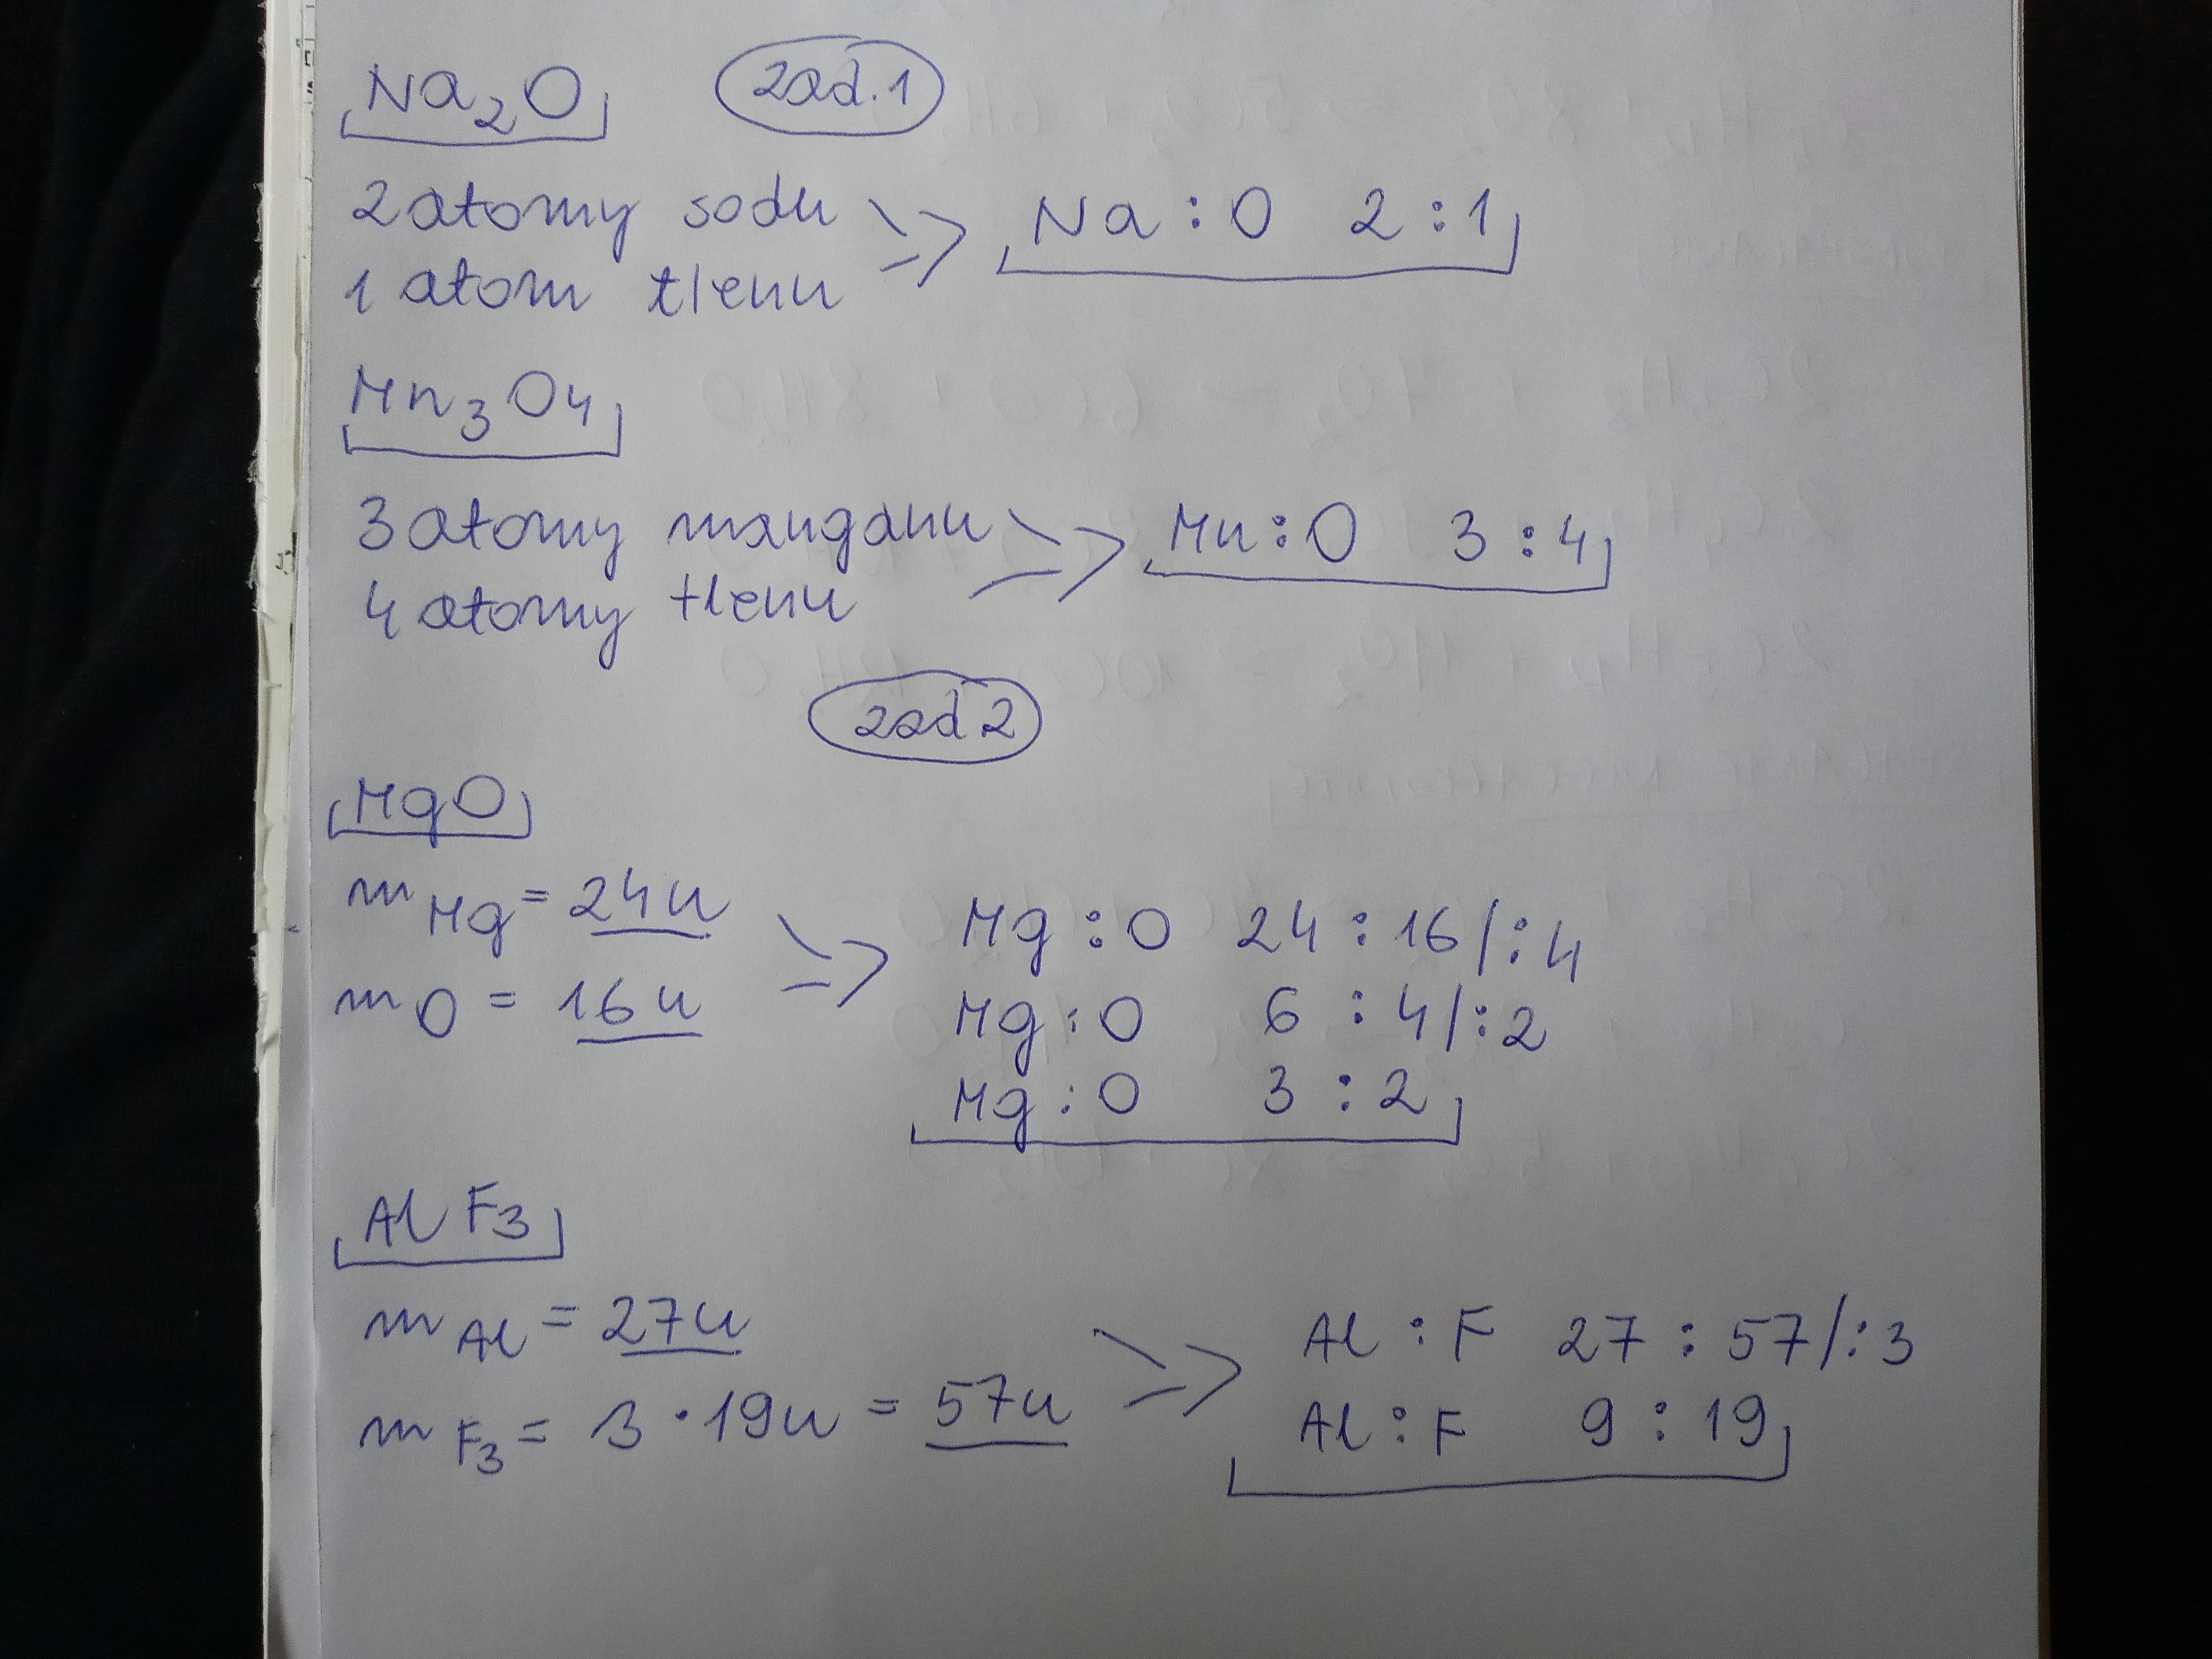 Na₂O zad.1
2 atomy sodu
1 atom tlenu
Na : O 2 : 1
Mn₃O₄
3 atomy manganu
4 atomy tlenu
Mn : O 3 : 4
zad 2
MgO
m Mg = 24u
m O = 16u
Mg : O 24 : 16 /: 4
Mg : O 6 : 4 /: 2
Mg : O 3 : 2
AlF₃
m Al = 27u
m F₃ = 3 · 19u = 57u
Al : F 27 : 57 /: 3
Al : F 9 : 19